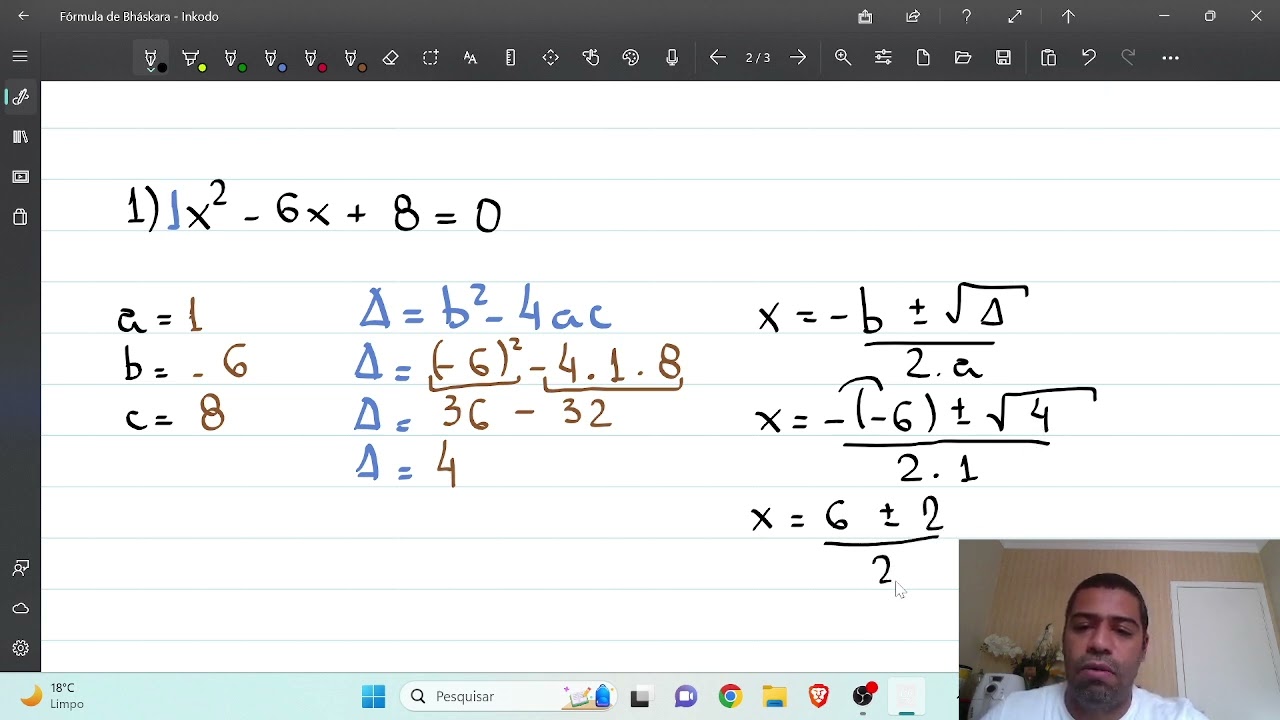 Fórmula de Bháskara - Inkodo
2/3
1) 1x² - 6x + 8 = 0
a = 1
b = - 6
c = 8
Δ = b² - 4ac
Δ = (- 6)² - 4 . 1 . 8
Δ = 36 - 32
Δ = 4
x = - b ± √Δ
2 . a
x = - (- 6) ± √4
2 . 1
x = 6 ± 2
2
18°C
Limpo
Pesquisar